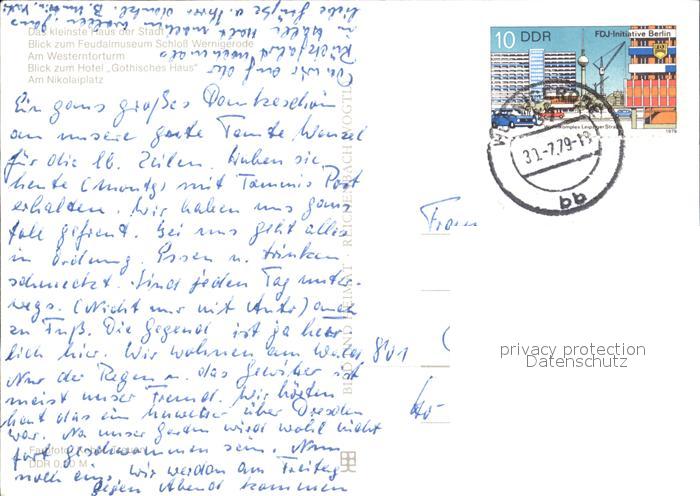 Das kleinste Haus der Stadt
Blick zum Feudalmuseum Schloß Wernigerode
Am Westerntorturm
Blick zum Hotel „Gothisches Haus"
Am Nikolaiplatz
Ein ganz großes Dankeschön
an unsere gute Tante Wenzel
für die lb. Zeilen. Haben sie
heute (Montg) mit Post
erhalten. Wir haben uns ganz
toll gefreut. Bei uns geht alles
in Ordnung. Essen u. trinken
schmeckt. Sind jeden Tag unter-
wegs. (Nicht nur mit Auto) auch
zu Fuß. Die Gegend ist ja herr
lich hier. Wir wohnen am Wald.
Nur der Regen u. das Gewitter ist
meist unser Freund. Wir hörten
heut das ein Unwetter über Dresden
war. Na unser Garten wird wohl nicht
fort geschwommen sein. Nun
noch eins, wir werden am Freitag
gegen Abend kommen
da wir auf der
Rückfahrt nochmals
in Halt machen wollen.
liebe Grüße a. Ihren
DDR 0, M
BILD UND HEIMAT · REICHENBACH (VOGTL)
10 DDR
FDJ-Initiative Berlin
Leipziger Straße
1979
31.-7.79-19
qq
801
privacy protection
Datenschutz